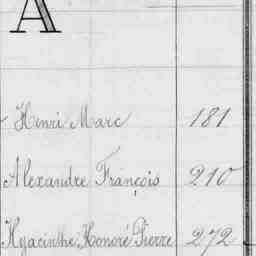 A
Henri Marc 181
Alexandre François 210
Hyacinthe Honoré Pierre 272